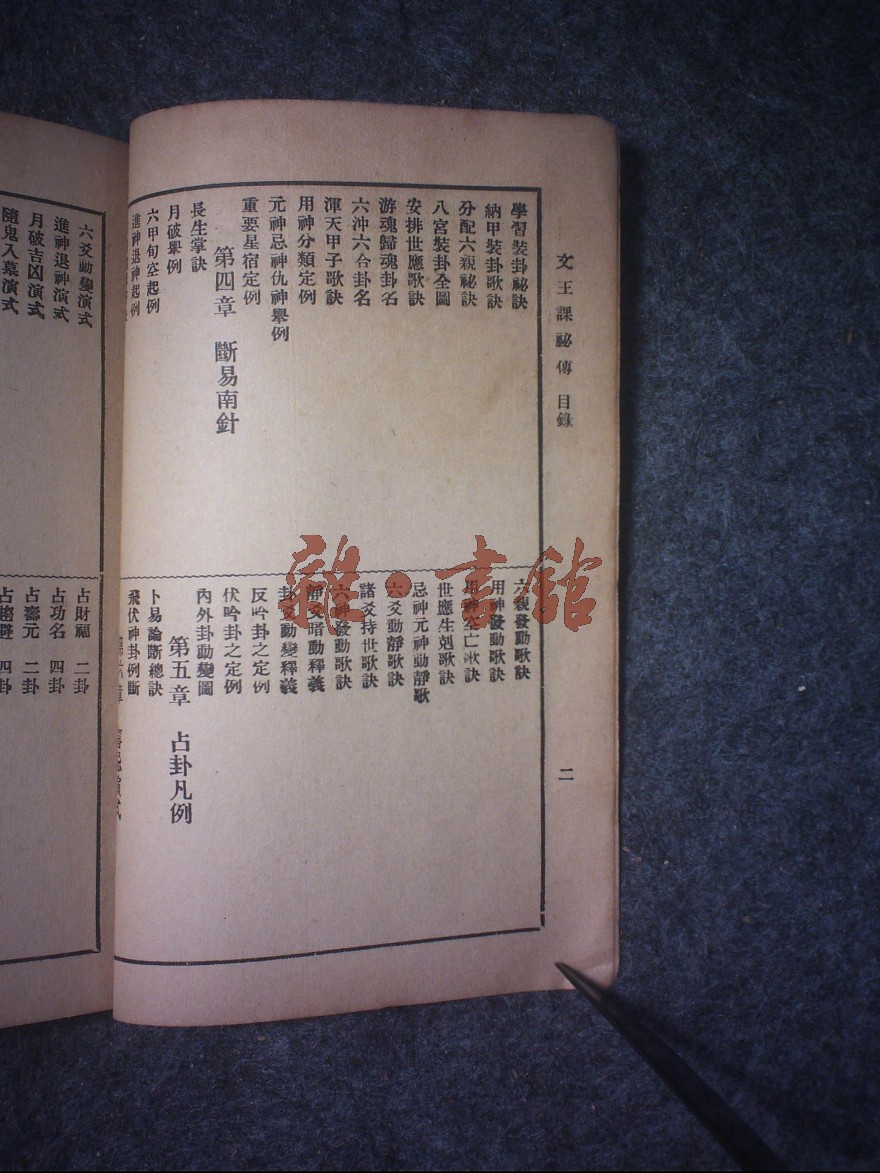 文王課祕傳 目錄
二
學習裝卦祕訣
納甲裝卦歌訣
分配六親祕訣
八宮裝卦全圖
安排世應歌訣
游魂歸魂卦名
六沖六合卦名
渾天甲子歌訣
用神分類定例
元神忌神仇神舉例
重要星宿定例
第四章 斷易南針
長生掌訣
月破舉例
六甲旬空起例
進神退神起例
六親發動歌訣
用神發動歌訣
用神空亡歌訣
世應生剋歌訣
忌神元神動靜歌
六爻動靜歌訣
諸爻持世歌訣
六神發動歌訣
靜爻暗動釋義
卦爻動變釋義
反吟卦之定例
伏吟卦之定例
內外卦動變圖
第五章 占卦凡例
卜易論斷總訣
飛伏神卦例斷
六爻動變演式
進神退神演式
月破吉凶演式
隨鬼入墓演式
占財福 二卦
占功名 四卦
占壽元 二卦
占趨避 四卦
雜·書館